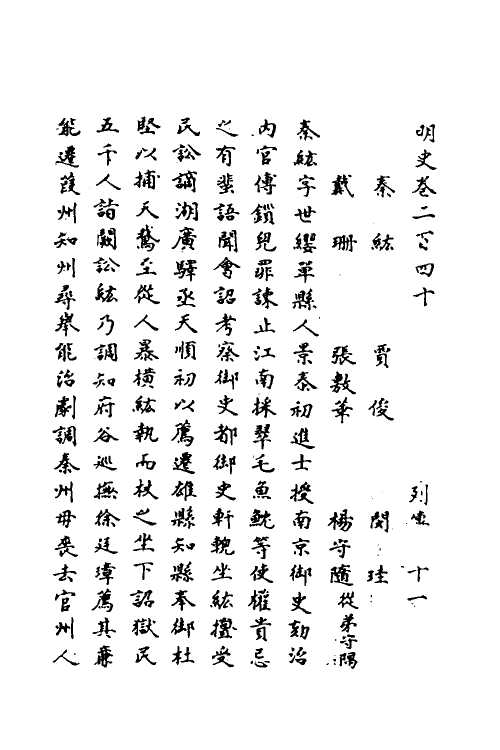 明史卷二百四十　列傳　十一
秦紘　賈俊　閔珪
戴珊　張敷華　楊守隨從弟守隅
秦紘字世纓單縣人景泰初進士授南京御史劾治
内官傅鎖兒罪諫止江南採翠毛魚䱹等使權貴忌
之有蜚語聞會詔考察御史都御史軒輗坐紘擅受
民訟謫湖廣驛丞天順初以薦遷雄縣知縣奉御杜
堅以捕天鵞至從人暴橫紘執而杖之坐下詔獄民
五千人詣闕訟紘乃調知府谷巡撫徐廷璋薦其廉
能遷葭州知州尋舉能治劇調秦州母喪去官州人